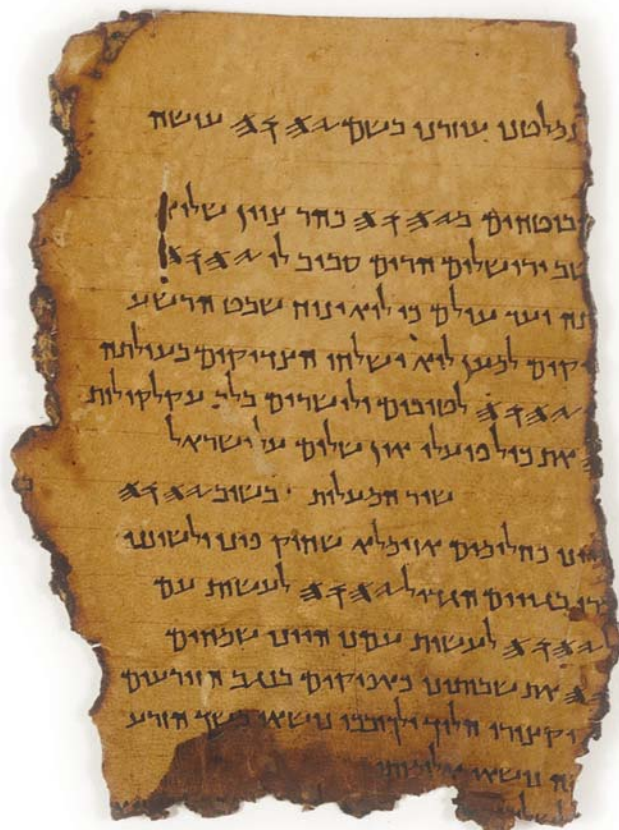 נמלטנו עזרנו בשם 𐤉𐤄𐤅𐤄 עושה
בוטחים ב𐤉𐤄𐤅𐤄 כהר ציון שלוא
שב ירושלים הרים סביב לו 𐤉𐤄𐤅𐤄
תה ועד עולם כי לוא ינוח שבט הרשע
יקים למען לוא ישלחו הצדיקים בעולתה
𐤉𐤄𐤅𐤄 לטובים ולישרים בלב עקלקולות
את כול פועלי און שלום על ישראל
שיר המעלות בשוב 𐤉𐤄𐤅𐤄
כחלומים אז ימלא שחוק פינו ולשוננו
בגויים הגדיל 𐤉𐤄𐤅𐤄 לעשות עם
𐤉𐤄𐤅𐤄 לעשות עמנו היינו שמחים
את שבותנו כאפיקים בנגב הזורעים
יקצורו הלוך ילך ובכו נושא משך הזרע
נושא